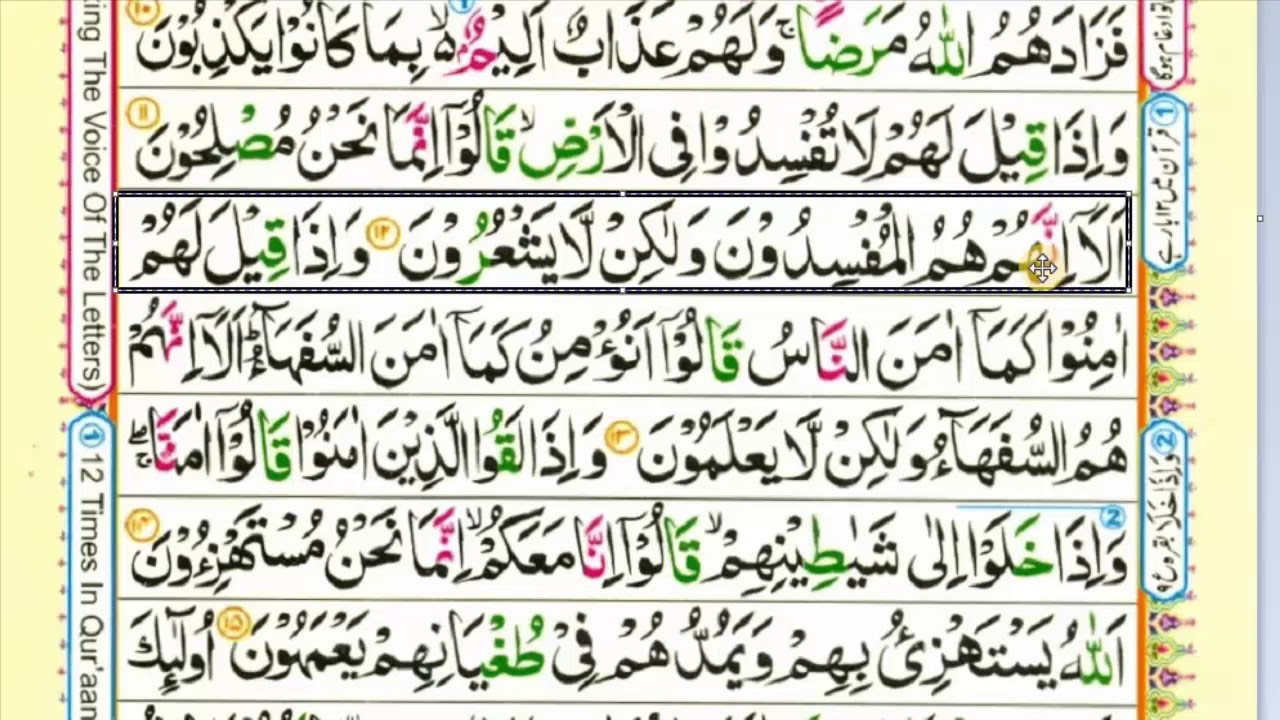 فَزَادَهُمُ اللّٰهُ مَرَضًا ۚ وَلَهُمْ عَذَابٌ اَلِيْمٌۢ ۙ۬ بِمَا كَانُوْا يَكْذِبُوْنَ ۱۰
وَاِذَا قِيْلَ لَهُمْ لَا تُفْسِدُوْا فِى الْاَرْضِ ۙ قَالُوْۤا اِنَّمَا نَحْنُ مُصْلِحُوْنَ ۱۱
اَلَاۤ اِنَّهُمْ هُمُ الْمُفْسِدُوْنَ وَلٰكِنْ لَّا يَشْعُرُوْنَ ۱۲ وَاِذَا قِيْلَ لَهُمْ
اٰمِنُوْا كَمَاۤ اٰمَنَ النَّاسُ قَالُوْۤا اَنُؤْمِنُ كَمَاۤ اٰمَنَ السُّفَهَآءُ ؕ اَلَاۤ اِنَّهُمْ
هُمُ السُّفَهَآءُ وَلٰكِنْ لَّا يَعْلَمُوْنَ ۱۳ وَاِذَا لَقُوا الَّذِيْنَ اٰمَنُوْا قَالُوْۤا اٰمَنَّا ۖۚ
2
وَاِذَا خَلَوْا اِلٰى شَيٰطِيْنِهِمْ ۙ قَالُوْۤا اِنَّا مَعَكُمْ ۙ اِنَّمَا نَحْنُ مُسْتَهْزِءُوْنَ ۱۴
اَللّٰهُ يَسْتَهْزِئُ بِهِمْ وَيَمُدُّهُمْ فِىْ طُغْيَانِهِمْ يَعْمَهُوْنَ ۱۵ اُولٰٓئِكَ
The Voice Of The Letters)
1 12 Times In Qur'aan
1 قرآن میں ۱۲ بار ہے
2